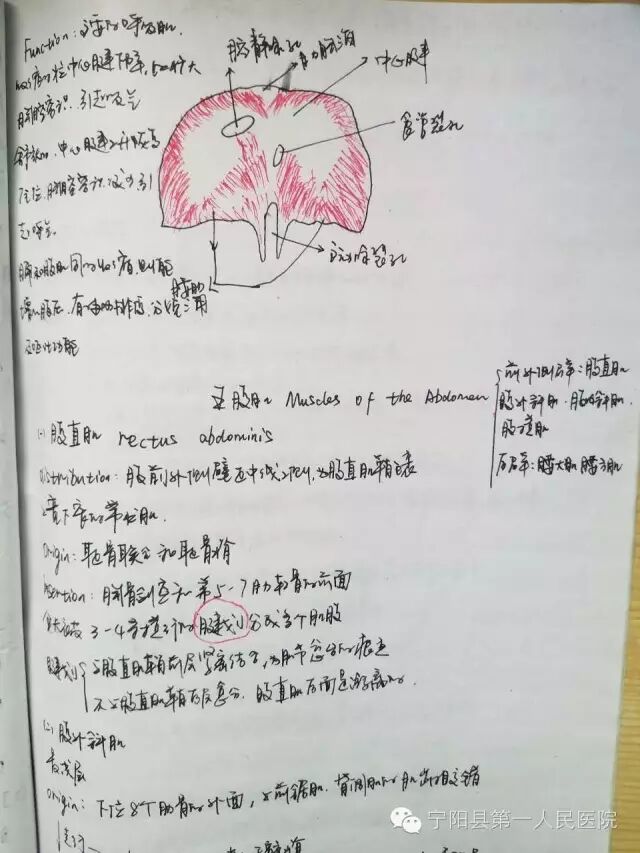 Function: 主要的呼吸肌.
收缩时 中心腱下降, 扩大
胸腔容积. 引起吸气
舒张时. 中心腱上升恢复
原位, 胸腔容积减少 引
起呼气.
膈和腹肌同时收缩, 则能
增加腹压, 有协助排便, 分娩
等功能
腔静脉孔
中心腱
食管裂孔
主动脉裂孔
膈肋
五 腹肌 Muscles of the Abdomen
前外侧群: 腹直肌
腹外斜肌. 腹内斜肌
腹横肌
后群: 腰大肌 腰方肌
(一) 腹直肌 rectus abdominis
Distribution: 腹前外侧壁正中线二侧, 为腹直肌鞘包裹
上宽下窄的带状肌.
Origin: 耻骨联合和耻骨嵴
Insertion: 胸骨剑突和第5-7肋软骨的前面
3-4条横行的腱划分成多个肌腹
腱划
与腹直肌鞘前层紧密结合, 为肌节愈合的痕迹
不与腹直肌鞘后层愈合. 腹直肌后面是游离的.
(二) 腹外斜肌
最浅层
origin: 下位8个肋骨的外面, 与前锯肌. 背阔肌的肌齿相交错
宁阳县第一人民医院